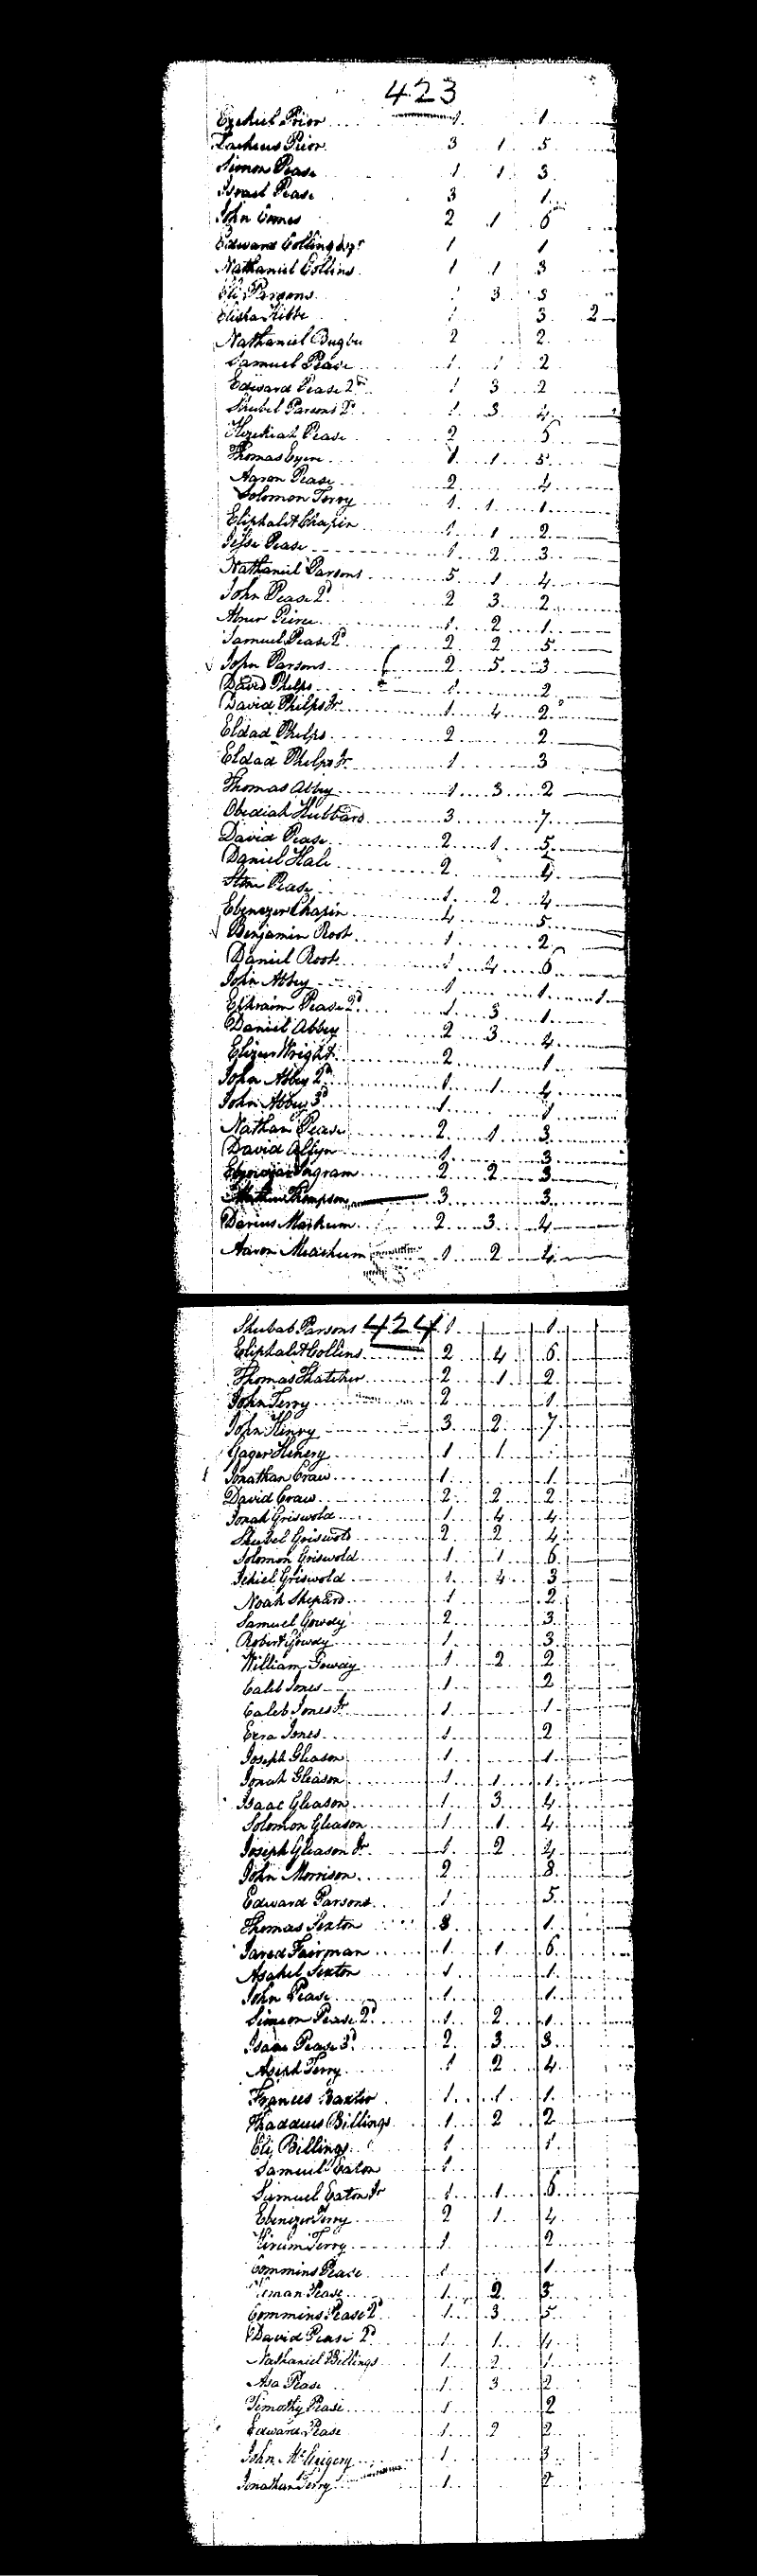 423
Ezekiel Prior 1 1
Zacheus Prior 3 1 5
Simon Pease 1 1 3
Israel Pease 3 1
John 2 1 6
Edward Collins 1 1
Nathaniel Collins 1 1 3
Eli Parsons 1 3 3
Elisha Kibbe 1 3 2
Nathaniel Bugbee 2 2
Samuel Pease 1 1 2
Edward Pease 2d 1 3 2
Shubel Parsons 2d 1 3 4
Hezekiah Pease 2 5
Thomas 1 1 5
Aaron Pease 2 4
Solomon Terry 1 1 1
Eliphalet Chapin 1 1 2
Jesse Pease 1 2 3
Nathaniel Parsons 5 1 4
John Pease 2d 2 3 2
Abner Peirce 1 2 1
Samuel Pease 2d 2 2 5
John Parsons 2 5 3
David Phelps 1 2
David Phelps Jr 1 4 2
Eldad Phelps 2 2
Eldad Phelps Jr 1 3
Thomas Abbey 1 3 2
Obediah Hubbard 3 7
David Pease 2 1 5
Daniel Hale 2 4
Stone Pease 1 2 4
Ebenezer Chapin 4 5
Benjamin Root 1 2
Daniel Root 1 4 6
John Abbey 1 1 1
Ephraim Pease 2d 1 3 1
Daniel Abbey 2 3 4
Elizur Wright 2 1
John Abbey 2d 1 1 4
John Abbey 3d 1 1
Nathan Pease 2 1 3
David Allyn 1 3
Ebenezer Ingram 2 2 3
Mathew Thompson 3 3
Darius Markum 2 3 4
Aaron Meachum 1 2 4
424
Shubab Parsons 1 1
Eliphalet Collins 2 4 6
Thomas Thatcher 2 1 2
John Terry 2 1
John Henry 3 2 7
Gager Henery 1 1
Jonathan Craw 1 1
David Craw 2 2 2
Jonah Griswold 1 4 4
Shubel Griswold 2 2 4
Solomon Griswold 1 1 6
Jehiel Griswold 1 4 3
Noah Shepard 1 2
Samuel Gowdy 2 3
Robert Gowdy 1 3
William Gowdy 1 2 2
Caleb Jones 1 2
Caleb Jones Jr 1 1
Ezra Jones 1 2
Joseph Gleason 1 1
Jonah Gleason 1 1 1
Isaac Gleason 1 3 4
Solomon Gleason 1 1 4
Joseph Gleason Jr 1 2 4
John Morrison 2 3
Edward Parsons 1 5
Thomas Sexton 3 1
Jared Fairman 1 1 6
Asahel Sexton 1 1
John Pease 1 1
Simeon Pease 2d 1 2 1
Isaac Pease 3d 2 3 3
Asaph Terry 1 2 4
Frances Baxter 1 1 1
Thaddeus Billings 1 2 2
Eli Billings 1 1
Samuel Eaton 1
Samuel Eaton Jr 1 1 6
Ebenezer Terry 2 1 4
Hirum Terry 1 2
Commins Pease 1 1
Heman Pease 1 2 3
Commins Pease 2d 1 3 5
David Pease 2d 1 1 4
Nathaniel Billings 1 2 1
Asa Pease 1 3 2
Timothy Pease 1 2
Edward Pease 1 2 2
John McGregory 1 3
Jonathan Terry 1 2